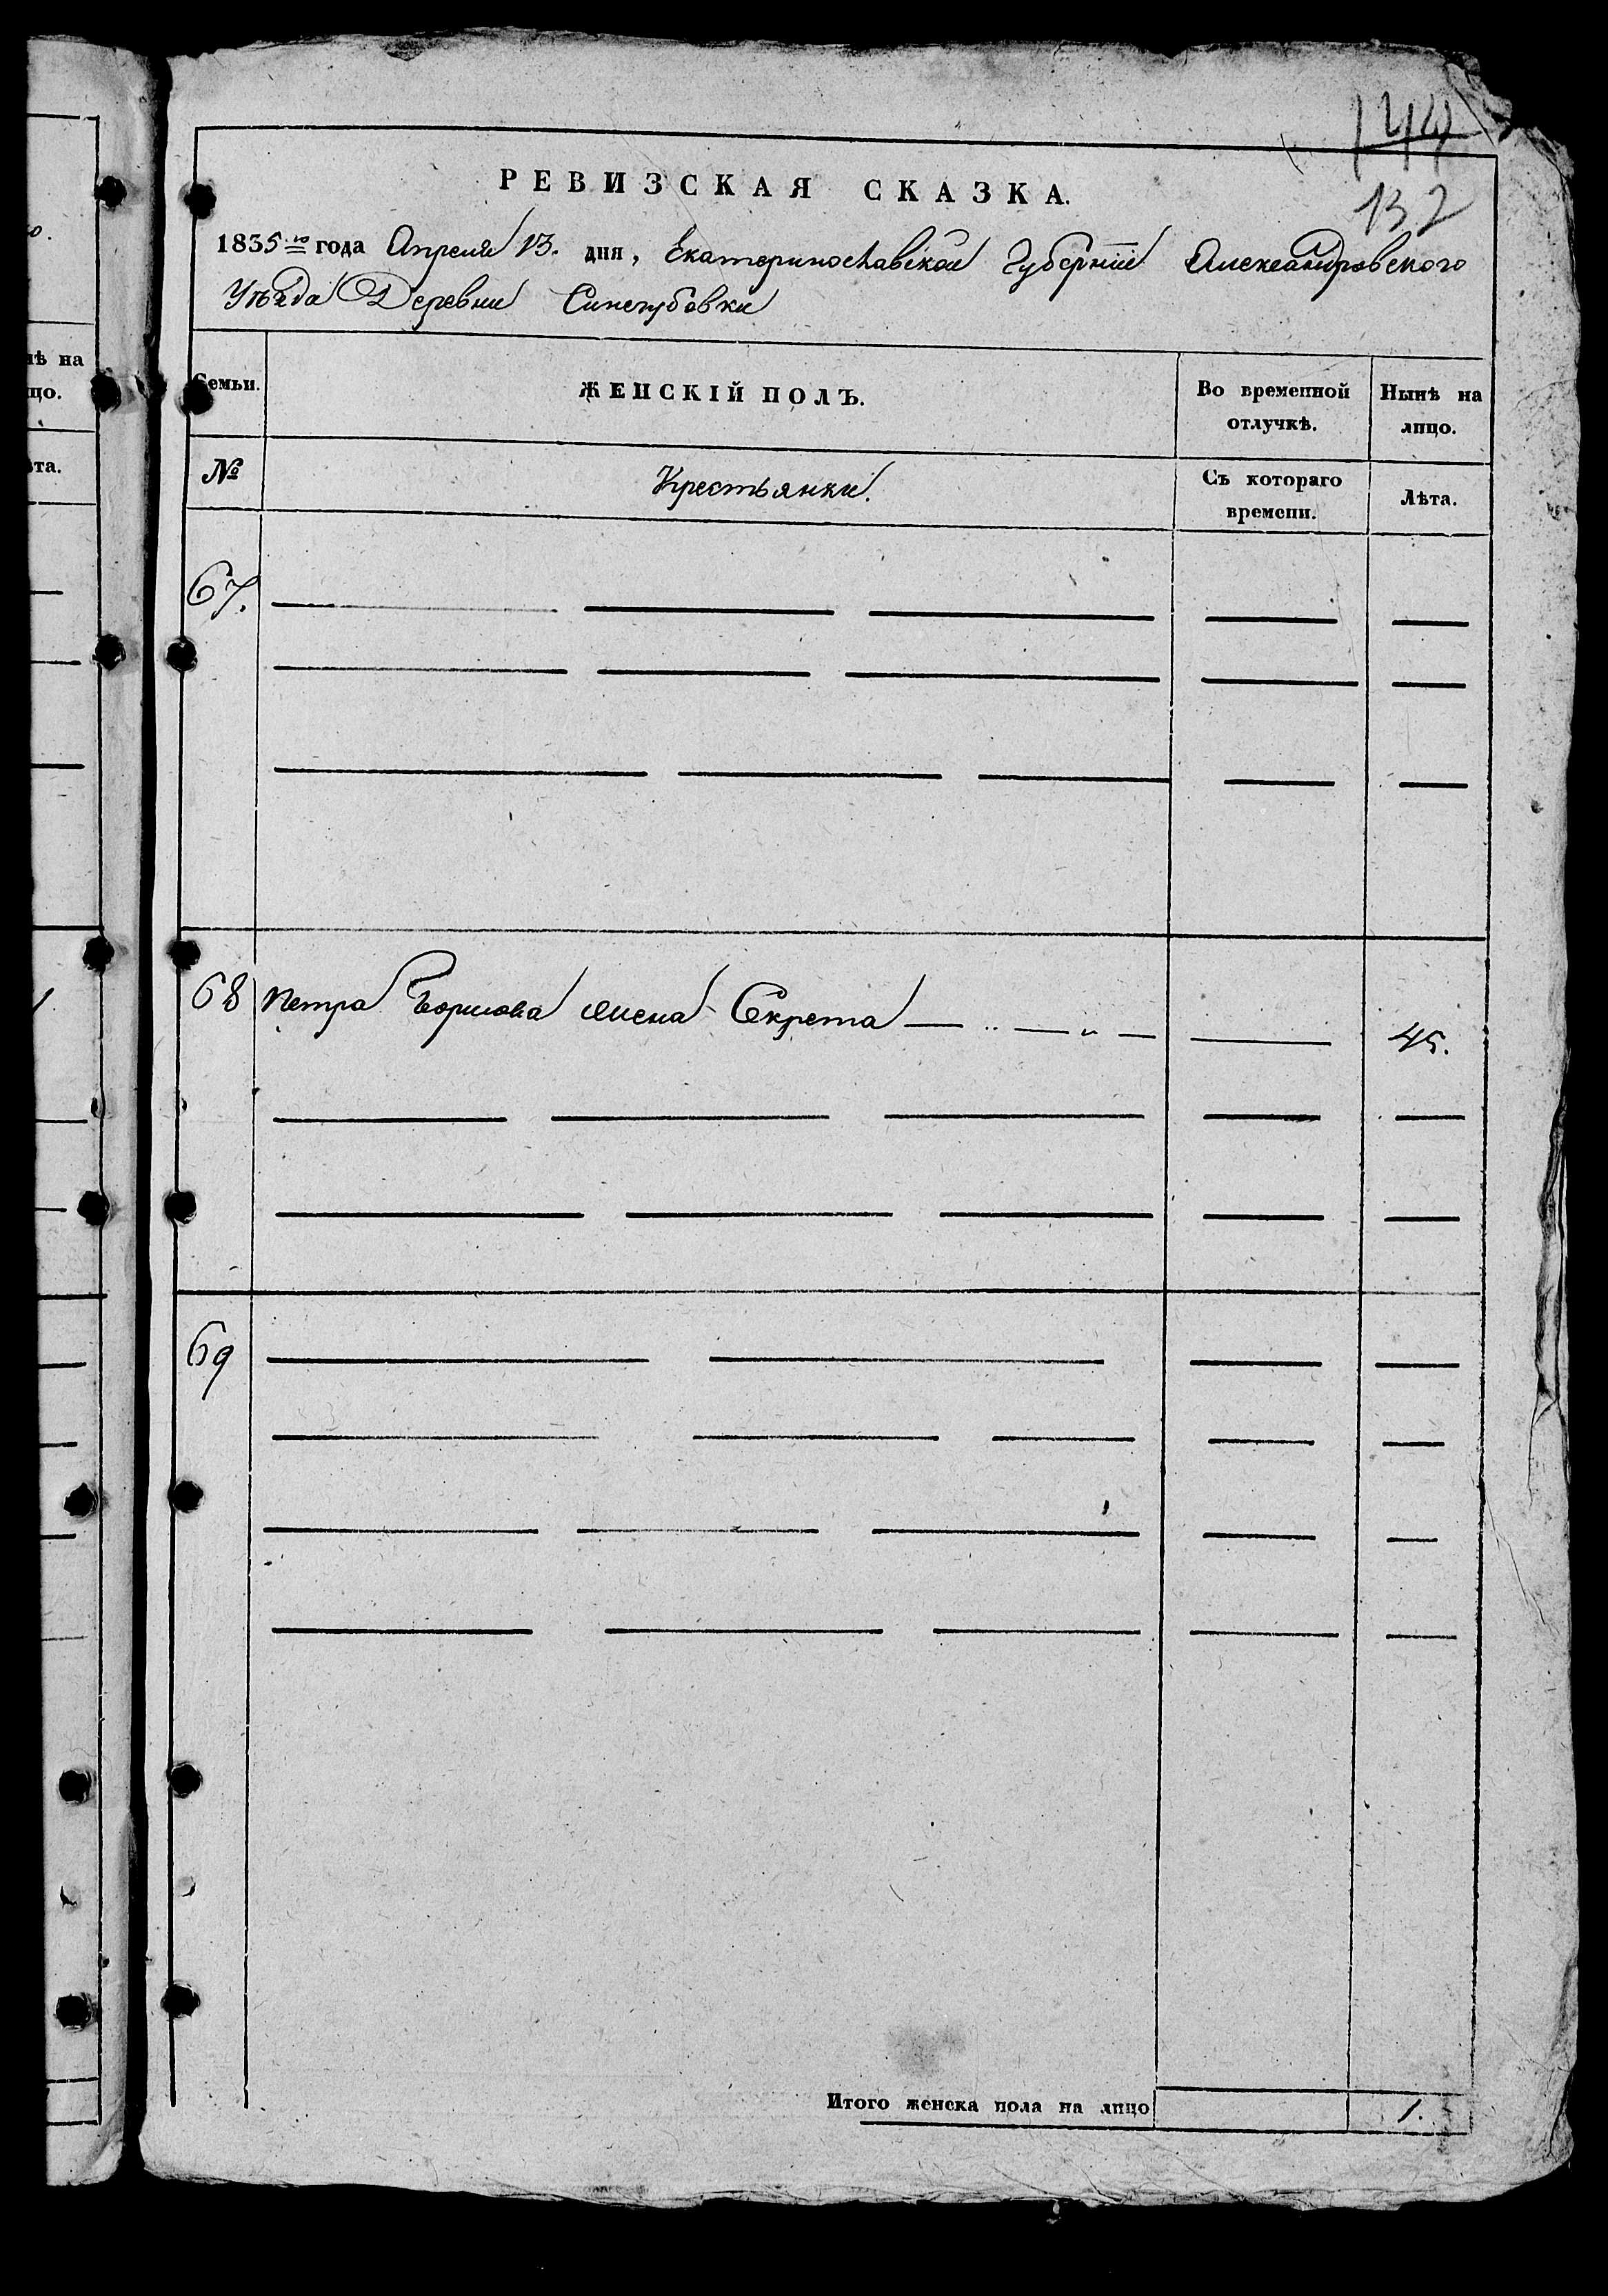 144
132
РЕВИЗСКАЯ СКАЗКА.
1835го года Апреля 13. дня, Екатеринославской Губернии Александровского
Уѣзда Деревни Синегубовки
Семьи. ЖЕНСКІЙ ПОЛЪ. Во временной отлучкѣ. Нынѣ на лицо.
№ Крестьянки. Съ котораго времени. Лѣта.
67.
68 Петра Борисова жена Секрета 45.
69
Итого женска пола на лицо 1.
нѣ на
цо.
та.